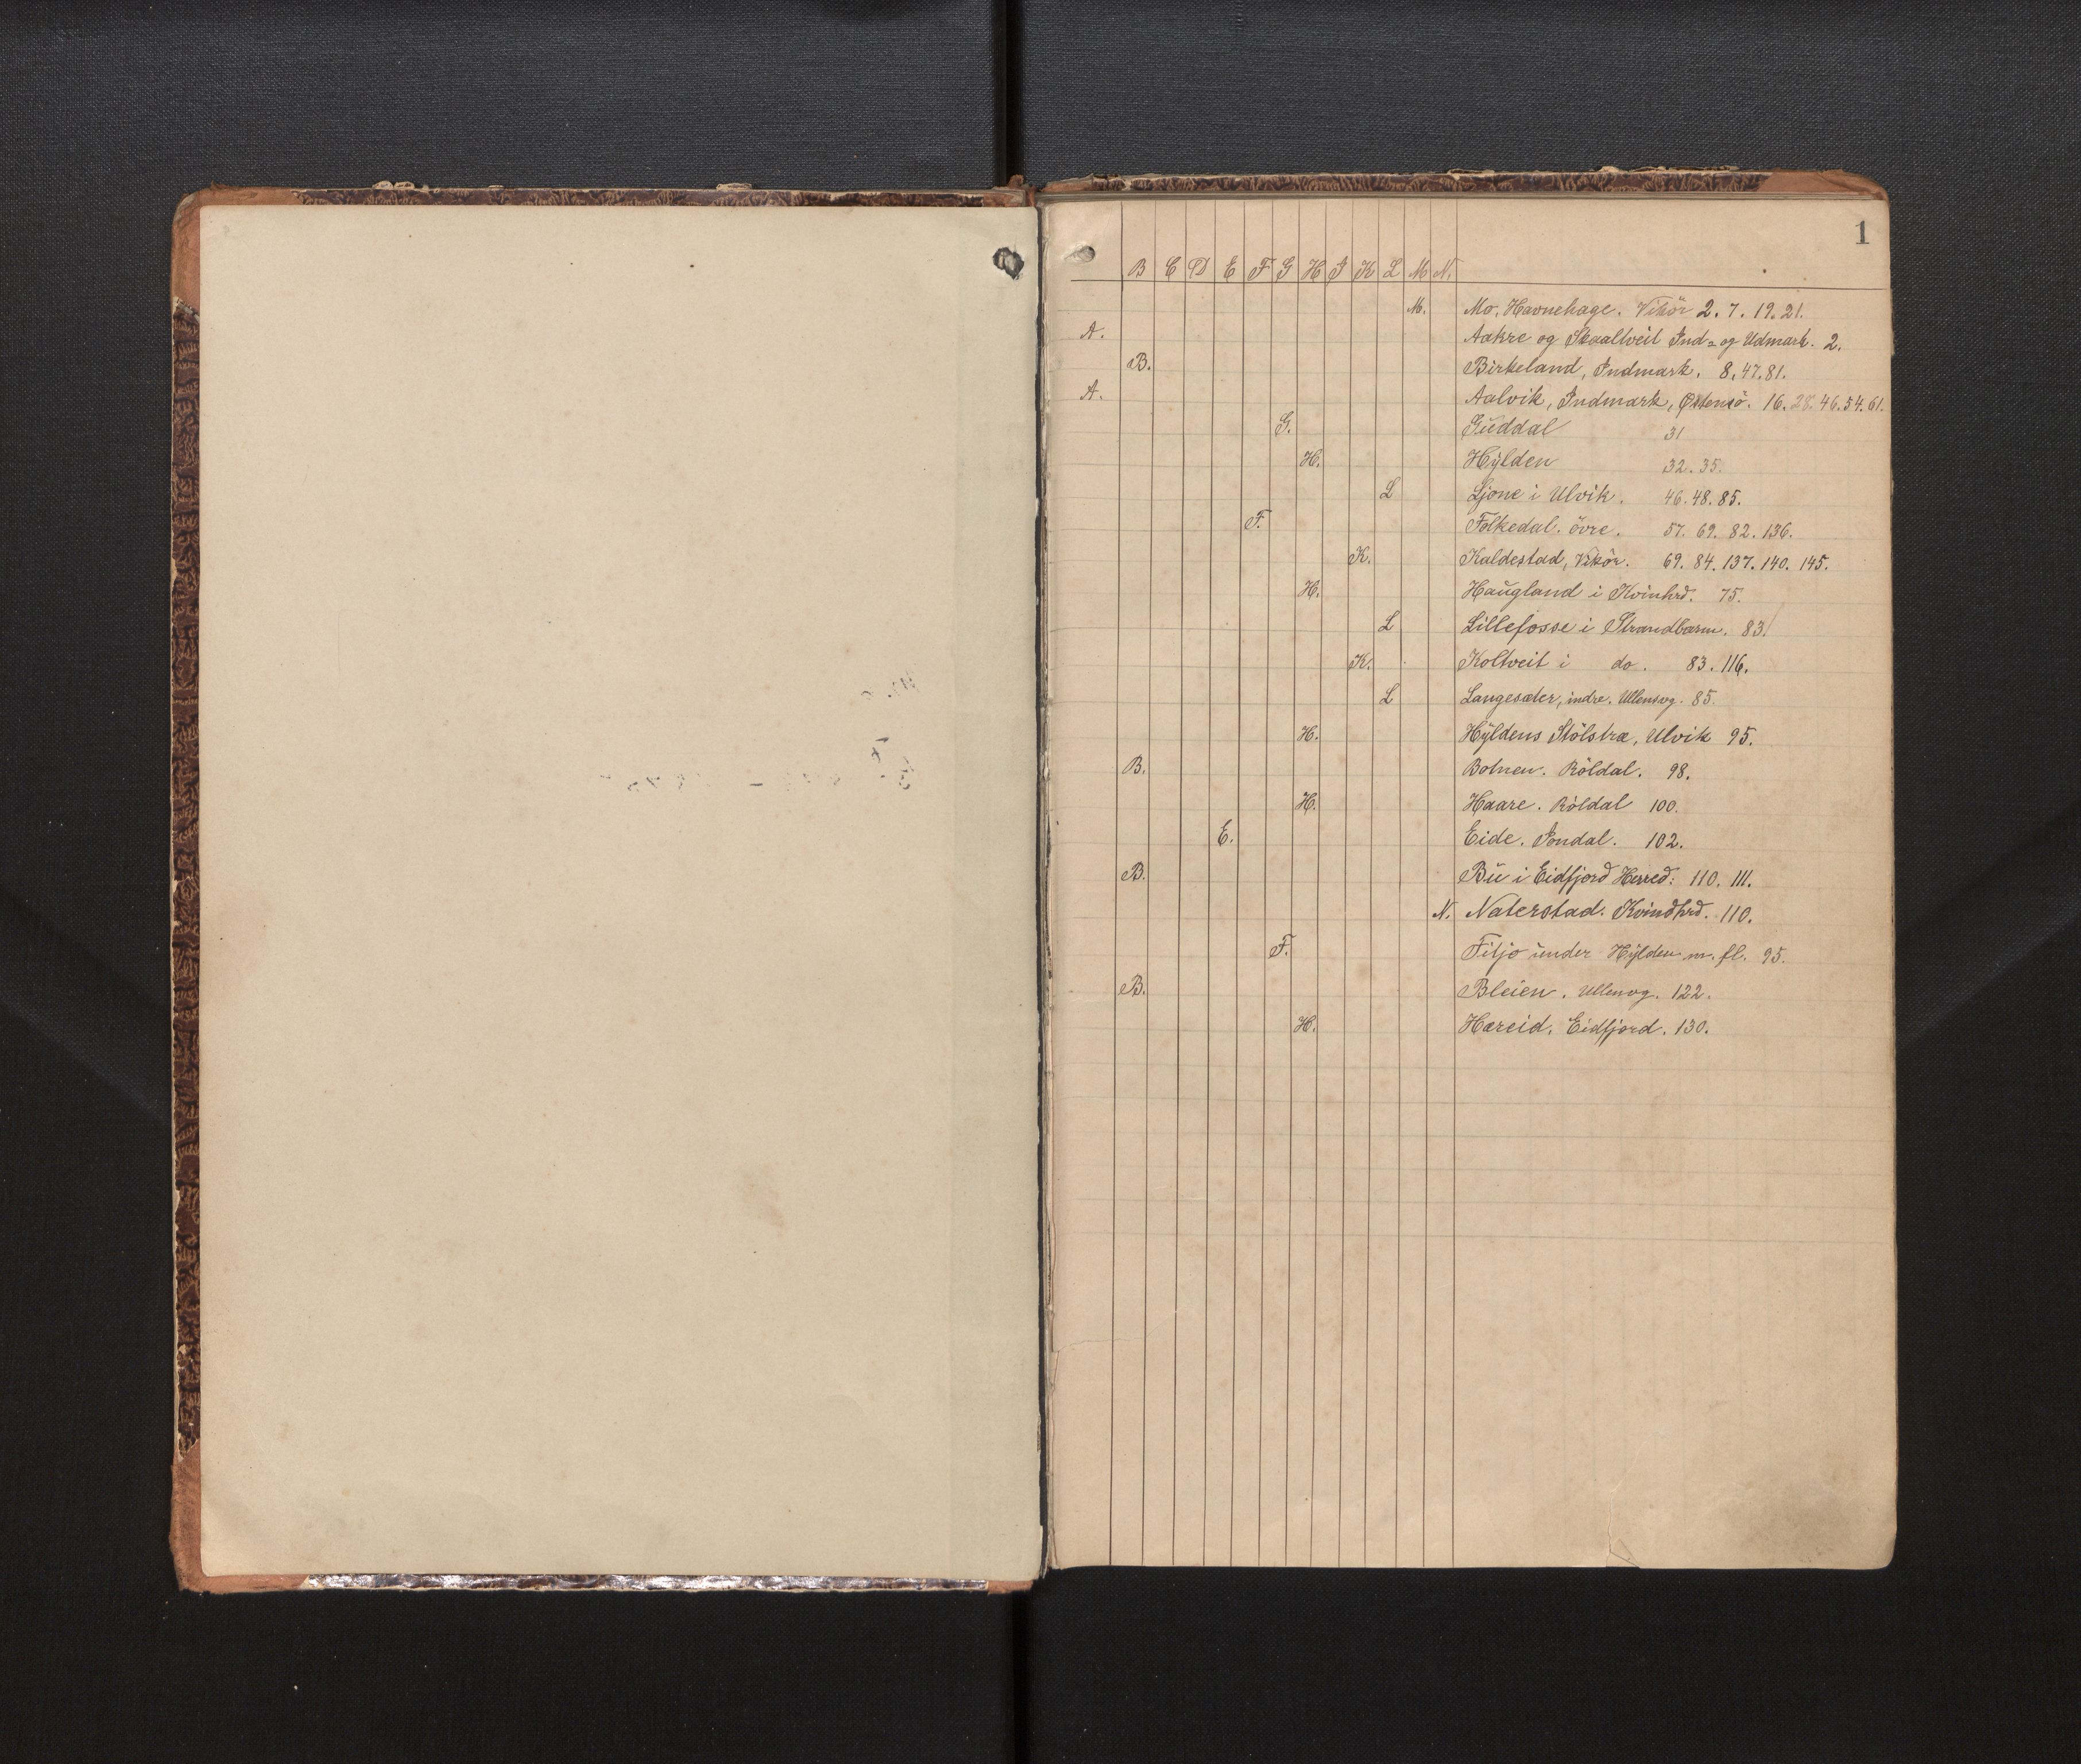 1
B C D E F G H I K L M N.
M. Mo, Havnehage. Vikör 2. 7. 19. 21.
A. Aakre og Skaaltveit Ind= og Udmark. 2.
B. Birkeland, Indmark. 8. 47. 81.
A. Aalvik, Indmark, Östensö. 16. 28. 46. 54. 61.
G. Guddal 31
H. Hylden 32. 35.
L Ljone i Ulvik. 46. 48. 85.
F. Folkedal. övre. 57. 69. 82. 136.
K. Kaldestad, Vikör. 69. 84. 137. 140. 145.
H. Haugland i Kvinhrd. 75.
L Lillefosse i Strandbarm. 83.
K. Koltveit i do. 83. 116.
L Langesæter, indre. Ullensvg. 85.
H. Hyldens Stölstræ, Ulvik 95.
B. Botnen. Röldal. 98.
H. Haare. Röldal 100.
E. Eide. Jondal. 102.
B. Bu i Eidfjord Herred: 110. 111.
N. Naterstad. Kvindhrd. 110.
F. Filjo under Hylden m. fl. 95.
B. Bleien. Ullensvg. 122.
H. Hæreid. Eidfjord. 130.